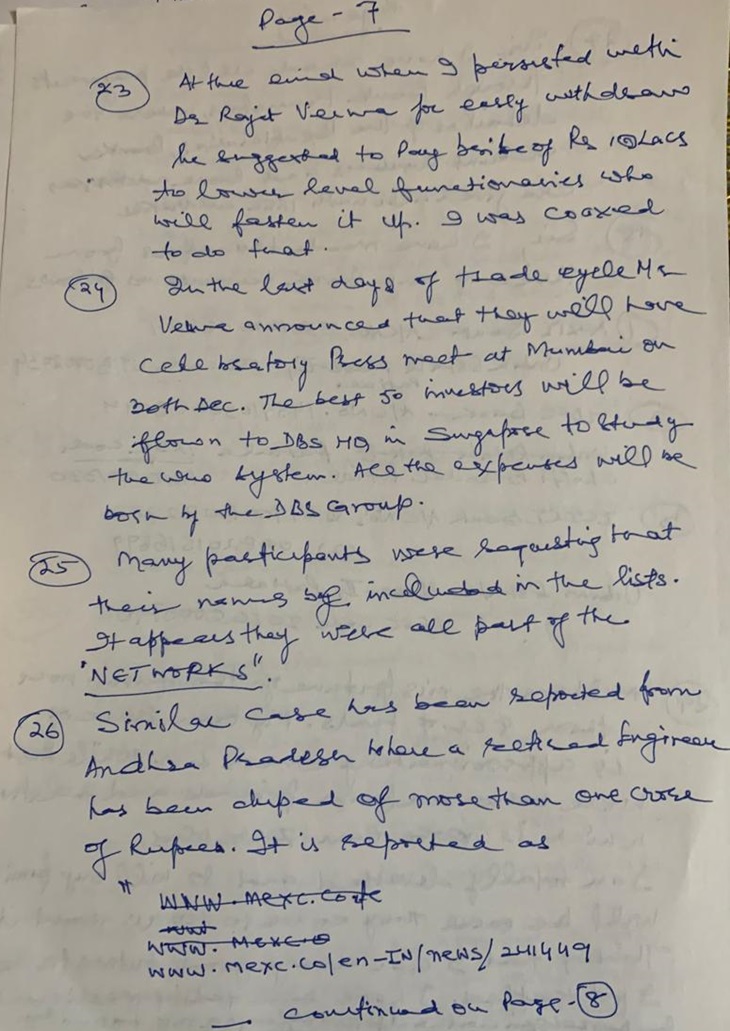 Page - 7
23 At the end when I persisted with
Dr Rajit Verma for early withdraw
he suggested to Pay bribe of Rs 10 Lacs
to lower level functionaries who
will fasten it up. I was coaxed
to do that.
24 In the last days of trade cycle Mr
Verma announced that they will have
Celebratory Press meet at Mumbai on
30th Dec. The best 50 investors will be
flown to DBS HQ in Singapore to study
the System. All the expenses will be
born by the DBS Group.
25 Many participants were requesting that
their names be included in the lists.
It appears they were all part of the
"NETWORKS".
26 Similar case has been reported from
Andhra Pradesh where a retired Engineer
has been duped of more than one crore
of Rupees. It is reported as
" www.mexc.co
www.mexc.o
www.mexc.co/en-IN/news/241449
— continued on Page - 8